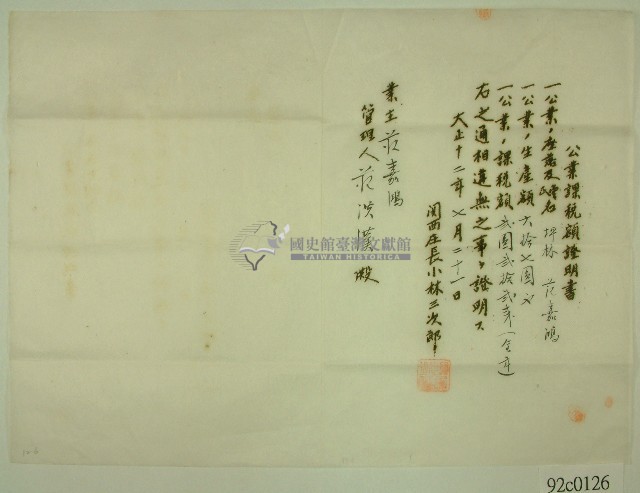 公業課税額證明書
一公業ノ座落及 名 坪林 范嘉鴻
一公業ノ生産額 六拾七圓
一公業ノ課税額 貳圓貳拾貳
右之通相違無之事ヲ證明ス
大正十二年七月二十一日
関西庄長小林三次郎
業主 范嘉鴻
管理人 范洪 殿
國史館臺灣文獻館
TAIWAN HISTORICA
92c0126